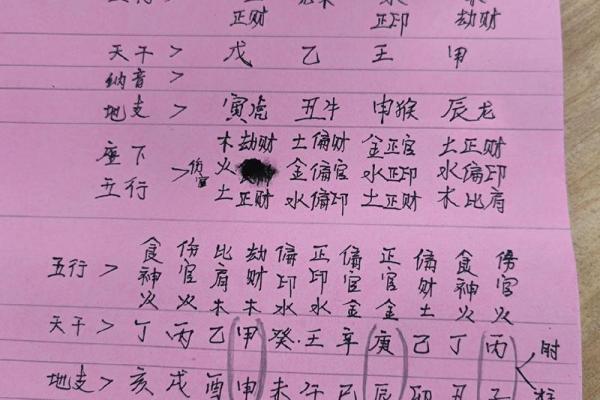 正财 正印 劫财
天干> 戊 乙 壬 甲
纳音>
地支> 寅虎 丑牛 申猴 辰龙
座下五行>
木劫财 土偏财 金正官 土正财
伤官 火 金偏官 水正印 水偏印
土正财 水偏印 土正财 木比肩
五行> 食神火 伤官火 比肩木 劫财木 偏印水 正印水 偏官金 正官金 偏财土 食神火 伤官火
天干> 丁 丙 乙 甲 癸.壬 辛 庚 己 丁 丙 时
地支> 亥 戌 酉 申 未 午 巳 辰 卯 丑 子 柱